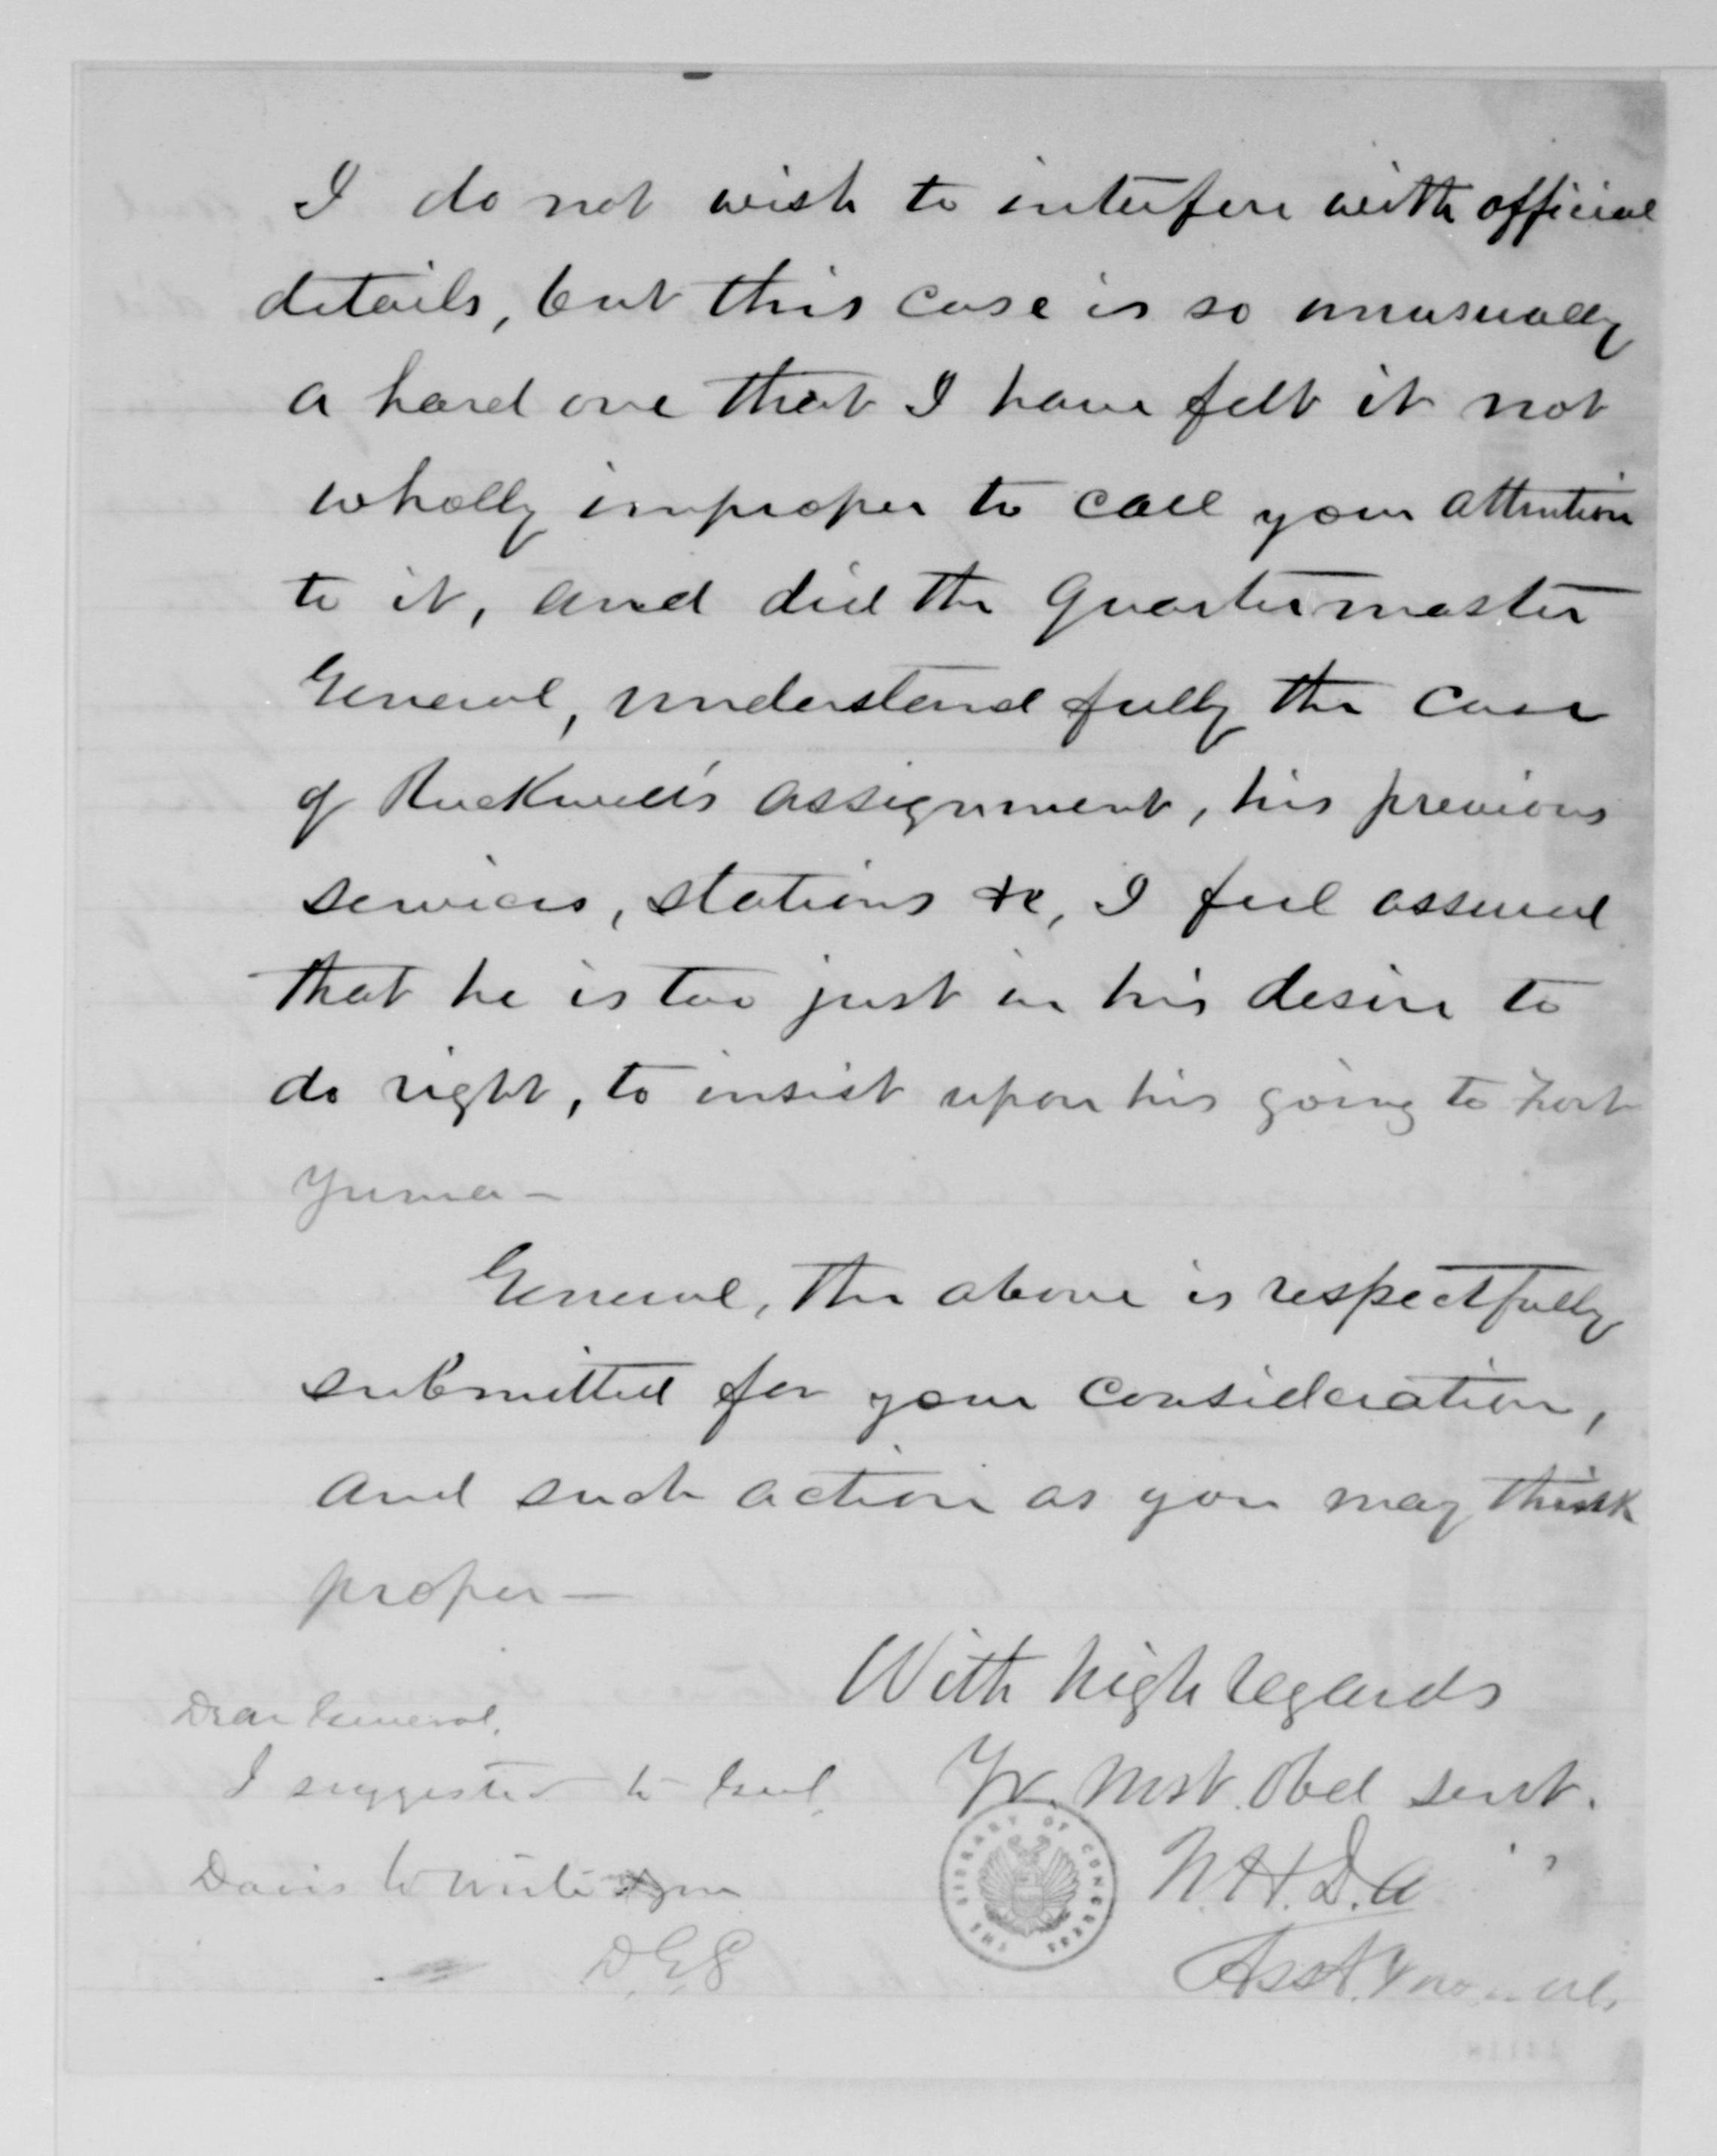 I do not wish to interfere with official
details, but this case is so unusually
a hard one that I have felt it not
wholly improper to call your attention
to it, and did the Quartermaster
General, understand fully the case
of Rockwell's assignment, his previous
services, stations &c, I feel assured
that he is too just in his desire to
do right, to insist upon his going to Fort
Yuma —
General, the above is respectfully
submitted for your consideration,
and such action as you may think
proper —
With high regards
Yr. Mst. Obd servt.
N.H.D.
Asst.
Dear General,
I suggested to Genl
Davis to write you
D.G.S
THE LIBRARY OF CONGRESS